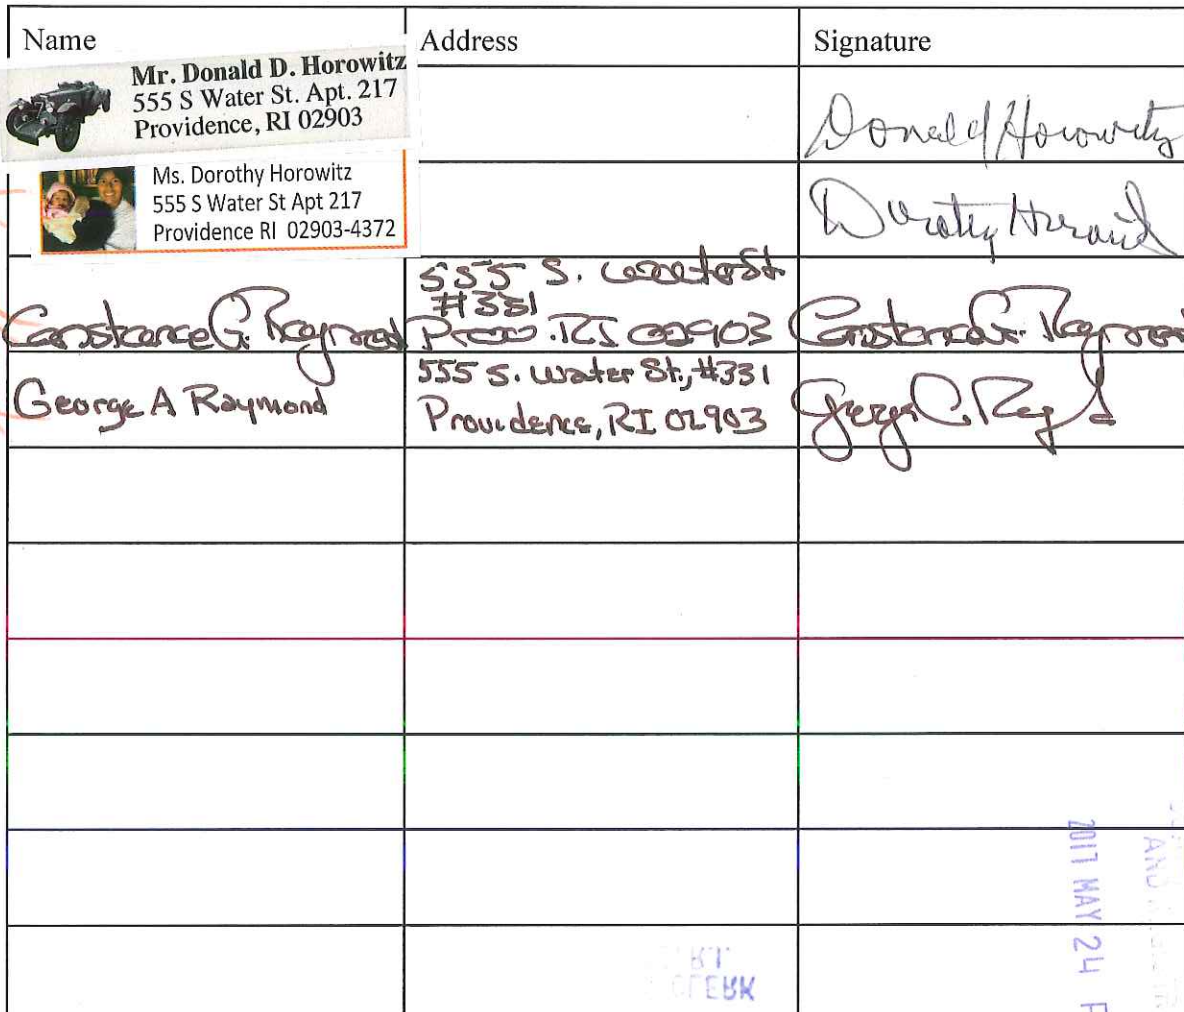 Name Address Signature
Mr. Donald D. Horowitz
555 S Water St. Apt. 217
Providence, RI 02903
Donald Horowitz
Ms. Dorothy Horowitz
555 S Water St Apt 217
Providence RI 02903-4372
Dorothy Horowitz
555 S. Water St.
#331
Constance G. Raymond Prov. RI 02903 Constance G. Raymond
George A Raymond
555 S. Water St., #331
Providence, RI 02903
2017 MAY 24 P
AND
R.I.
CLERK